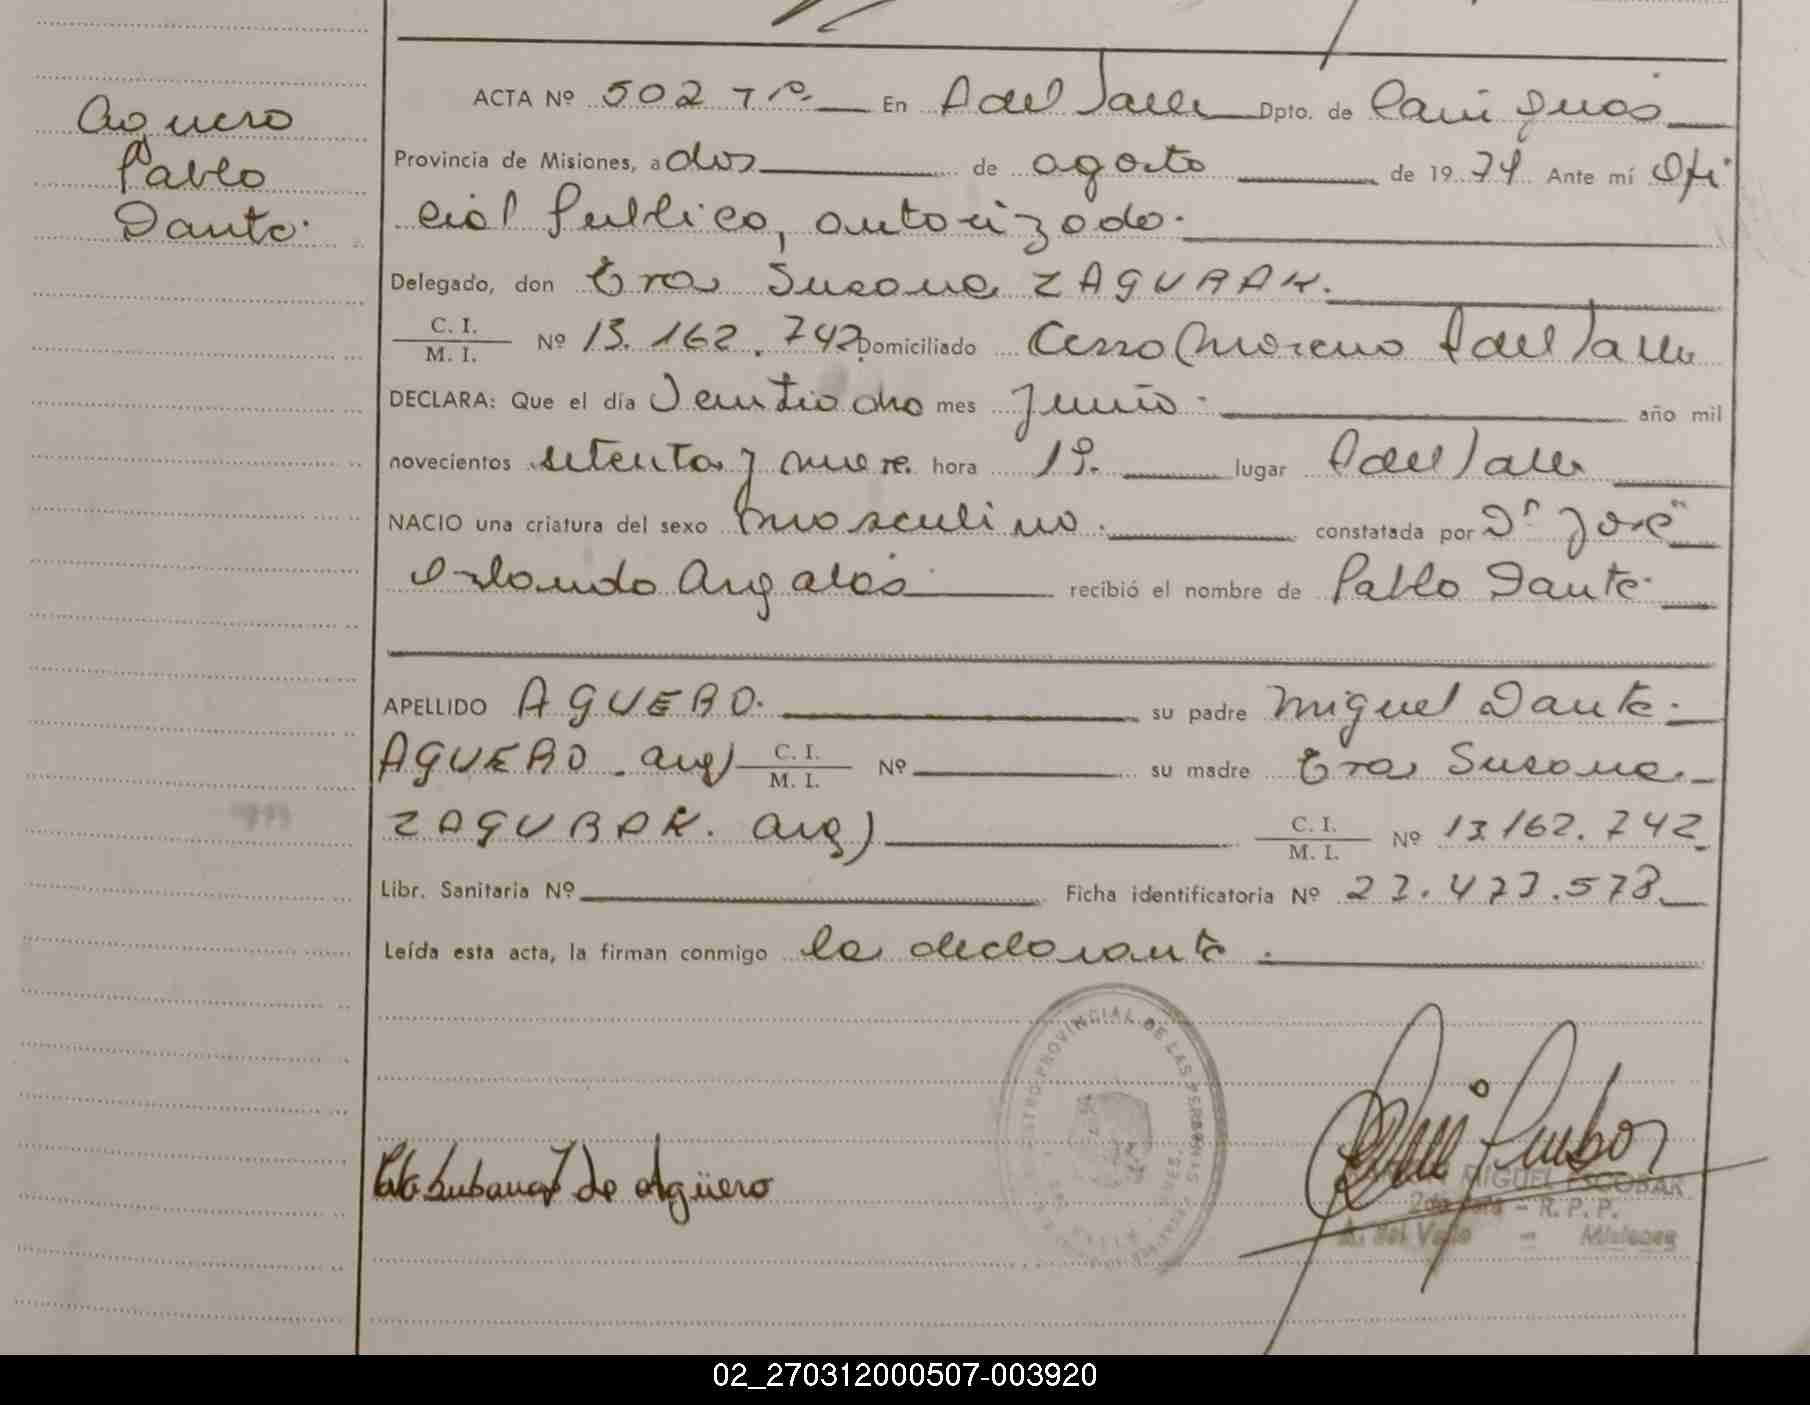 Aguero
Pablo
Dante.
ACTA Nº 502 T1º. En A del Valle Dpto. de Cainguas
Provincia de Misiones, a dos de agosto de 1979. Ante mí Ofi
cial Publico, autorizado.
Delegado, don Era Susana ZAGURAK.
C. I.
M. I. Nº 13.162.742 Domiciliado Cerro Moreno A del Valle
DECLARA: Que el día Ventiocho mes Junio. año mil
novecientos setenta y nueve. hora 19. lugar A del Valle
NACIO una criatura del sexo masculino. constatada por Dr José
Orlando Argarás recibió el nombre de Pablo Dante.
APELLIDO AGUERO. su padre Miguel Dante.
AGUERO. arg) C. I.
M. I. Nº su madre Era Susana.
ZAGURAK. arg) C. I.
M. I. Nº 13.162.742
Libr. Sanitaria Nº Ficha identificatoria Nº 27.473.578
Leída esta acta, la firman conmigo la declarante.
PROVINCIAL DE LAS PERSONAS
de Agüero
MIGUEL ESCOBAR
2do Jefe - R. P. P.
A. del Valle - Misiones
02_270312000507-003920